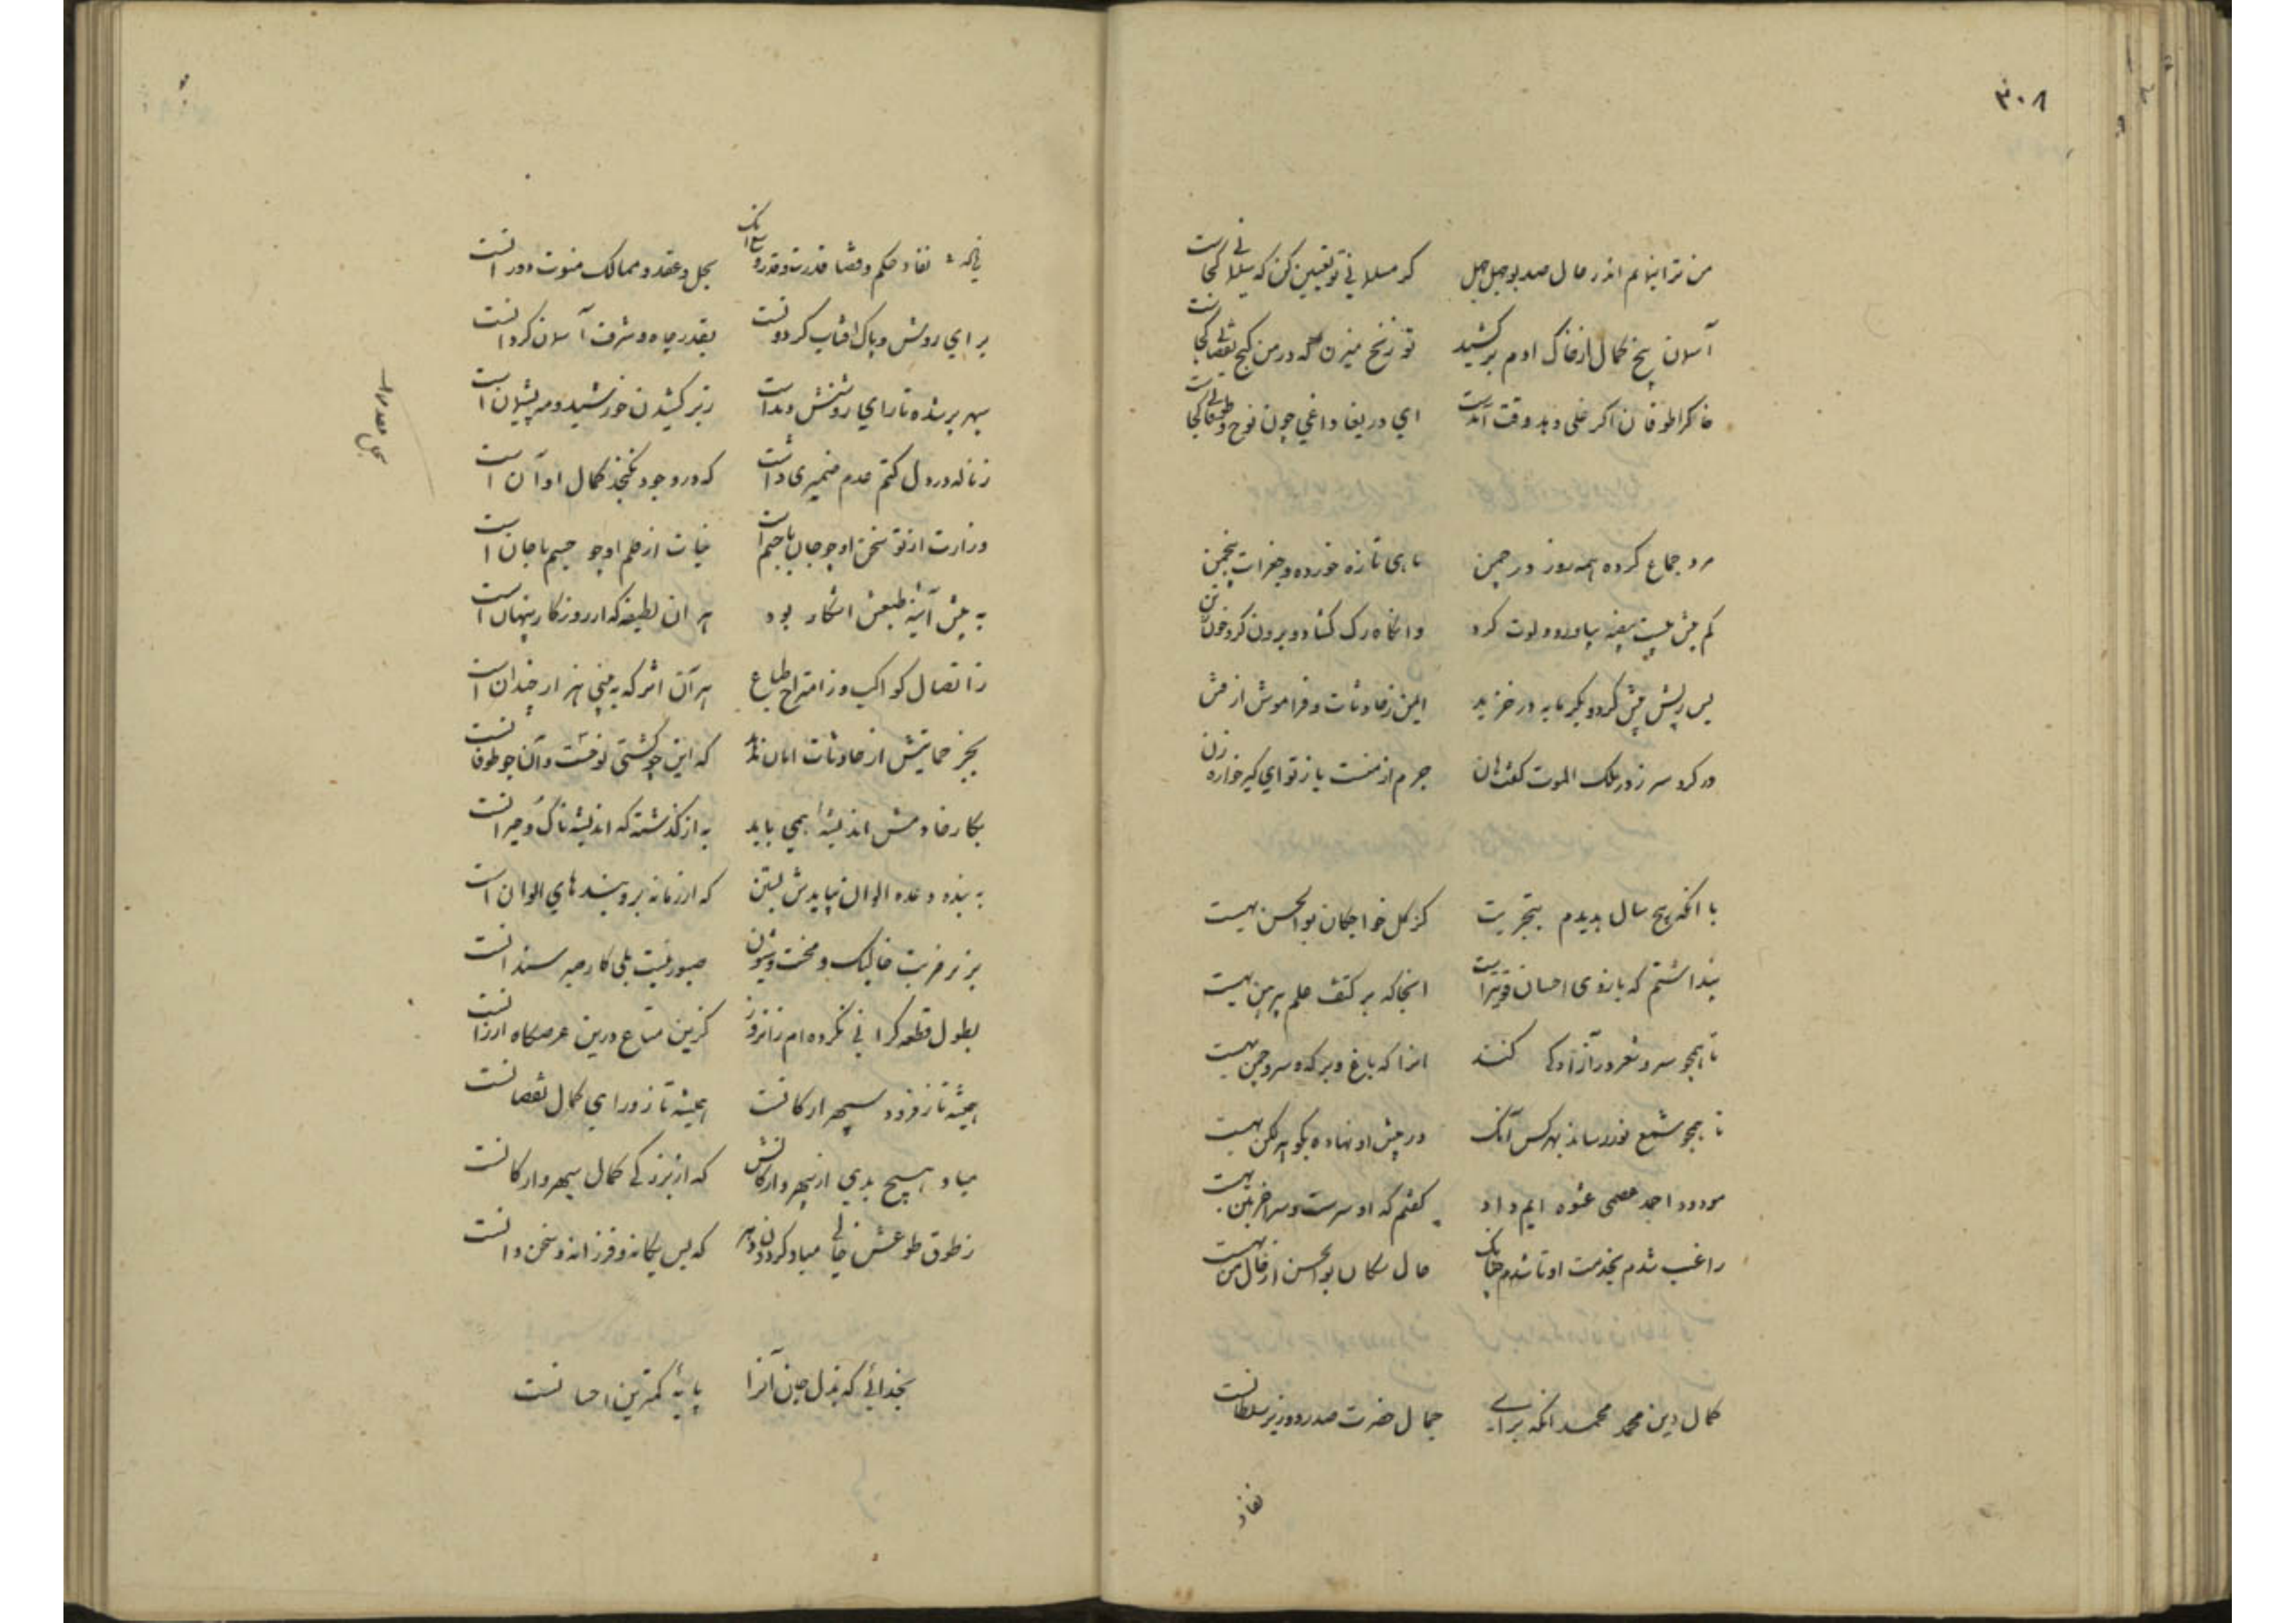 ۳۰۸
من ترا بنمایم اندر حال صد بوجهل جهل کر مسلمانی تو تعیین کن که سلمانی کجاست
آسمان بیخ کمال از خاک ادم برکشید تو زنخ میزن که در من کنج نقصانی کجاست
خاکرا طوفان اکر غسلی دهد وقت آمدست ای دریغا داغی چون نوح و طوفانی کجاست
مرد جماع کرده همه روز در چمن ماهی تازه خورده و جغرات پنجمن
کم بیش بیست بیضه بیاورد و لوت کرد وانکاه رک کشاد و برون کرد خون ز تن
پس ریش کرد و بکرمابه در خزید ایمن ز حادثات و فراموش از
در کرد سر ز در ملک الموت کفت هان جرم از منست یا ز تو ای کیر خواره زن
با انکه پنج سال بدیدم بتجربت کز کل خواجکان بوالحسن بهست
پنداشتم که بازوی احسان قویترست انجا که بر کتف علم پیرهن بهست
تا همچو سرو نعره در آزادکی کنند انرا که باغ و برکه و سرو چمن بهست
تا همچو شمع نور رساند بهر کس آنک در پیش او نهاده بکوهر لکن بهست
مودود احمد عصمی عشوه ایم داد کفتم که او سرست و سر اخر ز تن بهست
راغب شدم بخدمت او تا شدم چنانک حال سکان بوالحسن از حال من بهست
کمال دین محمد محمد انکه برای جمال حضرت صدر و وزیر سلطانست
نفاذ
نفاذ حکم و قضا قدرت و قدر و سع انک بحل و عقد و ممالک دورانست
برای روشن و پاک افتاب کردونست بقدر جاه و شرف آسمان کردانست
سپهر بر شده تا رای روشنش دیداست زبر کشیدن خورشید و مه پشیمان است
زمانه در دل کتم عدم ضمیری داشت که در وجود نکنجد کمال او آن است
وزارت از تو سخن او چو جان با جسم است حیات از قلم او چو جسم با جان است
به پیش آینه طبعش اشکار بود هر ان لطیفه که از روزکار پنهان است
ز اتصال کواکب وز امتزاج طباع هر آن اثر که به بینی هزار چندان است
بجز حمایتش از حادثات امان ندهد که این چو کشتی نوحست و آن چو طوفانست
بکار خادمش اندیشه همی باید به از کذشته که اندیشه ناک و حیرانست
به بنده وعده الوان نبایدش بستن که از زمانه برو بندهای الوان است
صبور نیست بلی کار صبر سندانست
بطول قطعه کرانی نکرده ام زانروز کزین متاع درین عرصکاه ارزانست
همیشه تا ز فرود سپهر ارکانست همیشه تا ز ورای کمال نقصانست
مباد هیچ بدی از سپهر و ارکانش که از بزرکی کمال سپهر و ارکانست
ز طوق طوعش خالی مباد کردن دهر که بس یکانه و فرزانه و سخن دانست
بخدائی که بذل جان آنرا پایهٔ کمترین احسانست